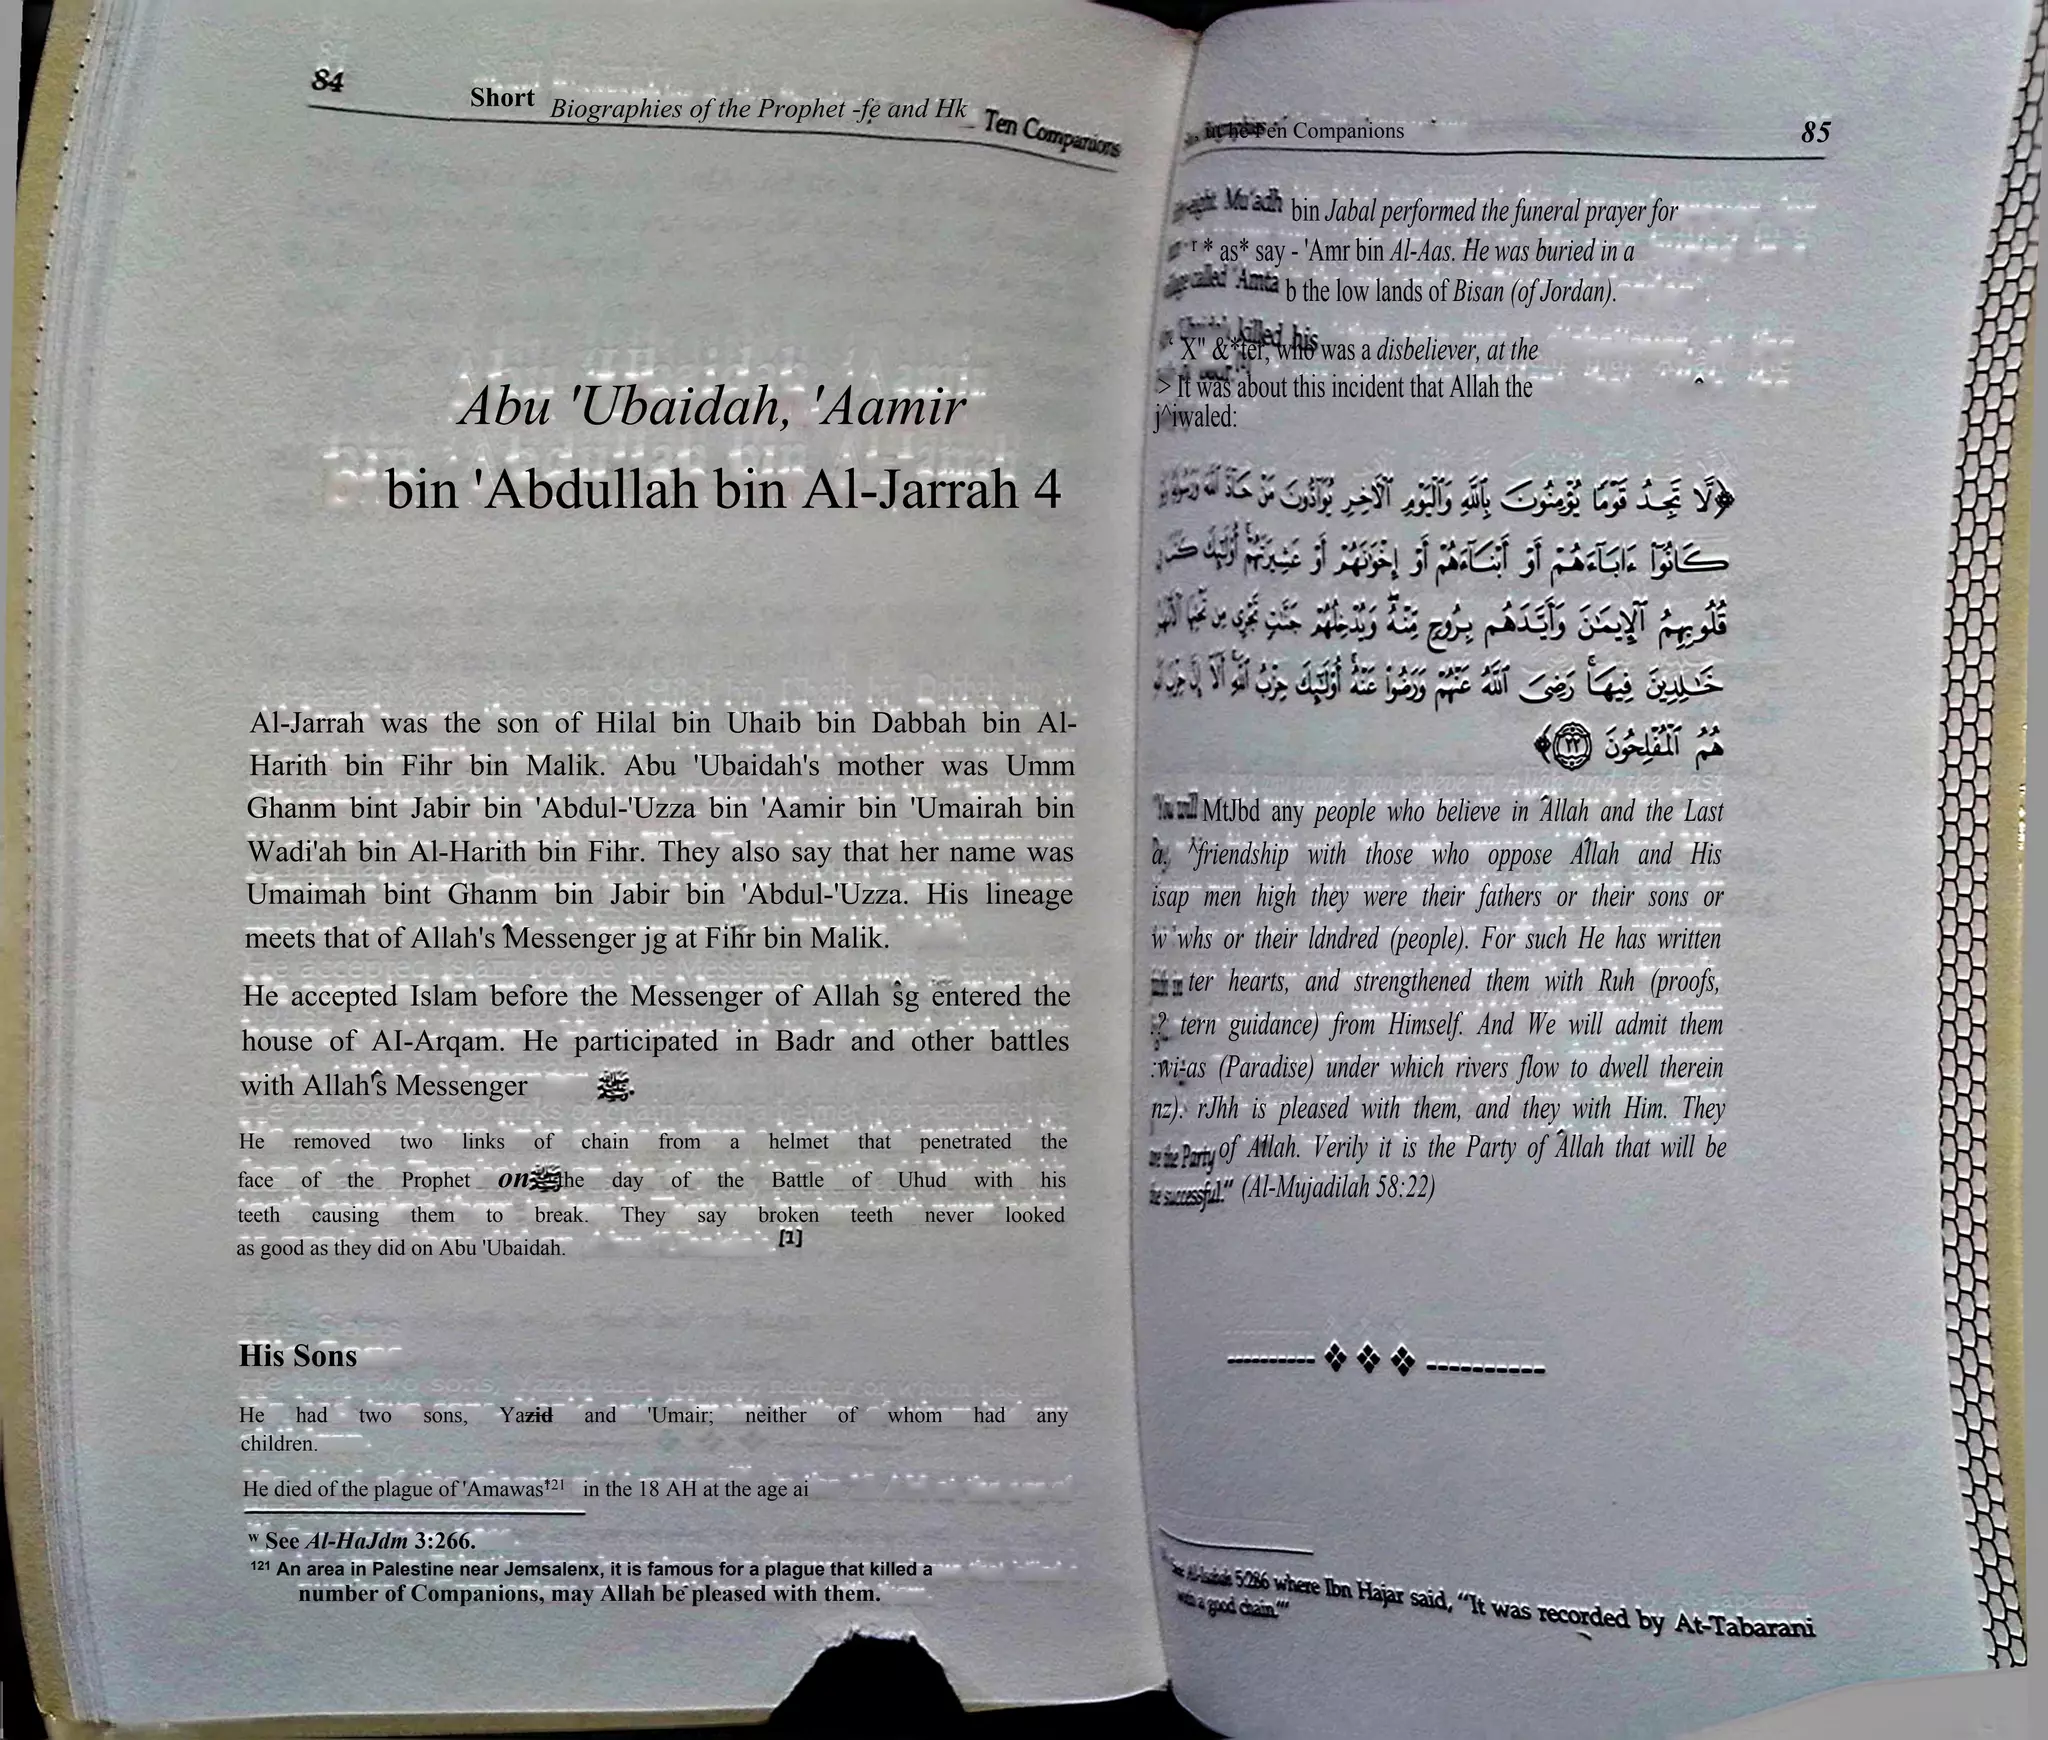 84
Short Biographies of the Prophet -fe and Hk Ten Companions
Abu 'Ubaidah, 'Aamir
bin 'Abdullah bin Al-Jarrah 4
Al-Jarrah was the son of Hilal bin Uhaib bin Dabbah bin Al-
Harith bin Fihr bin Malik. Abu 'Ubaidah's mother was Umm
Ghanm bint Jabir bin 'Abdul-'Uzza bin 'Aamir bin 'Umairah bin
Wadi'ah bin Al-Harith bin Fihr. They also say that her name was
Umaimah bint Ghanm bin Jabir bin 'Abdul-'Uzza. His lineage
meets that of Allah's Messenger jg at Fihr bin Malik.
He accepted Islam before the Messenger of Allah sg entered the
house of AI-Arqam. He participated in Badr and other battles
with Allah's Messenger ﷺ.
He removed two links of chain from a helmet that penetrated the
face of the Prophet on ﷺ the day of the Battle of Uhud with his
teeth causing them to break. They say broken teeth never looked
as good as they did on Abu 'Ubaidah. [1]
His Sons
He had two sons, Yazid and 'Umair; neither of whom had any
children.
He died of the plague of 'Amawas†21 in the 18 AH at the age ai
w See Al-HaJdm 3:266.
121 An area in Palestine near Jemsalenx, it is famous for a plague that killed a
number of Companions, may Allah be pleased with them.
en Companions 85
Mu'adh bin Jabal performed the funeral prayer for
r * as* say - 'Amr bin Al-Aas. He was buried in a
called 'Amta b the low lands of Bisan (of Jordan).
killed his
X" &*ter, who was a disbeliever, at the
> It was about this incident that Allah the
j^iwaled:
﴿لَا تَجِدُ قَوْمًا يُؤْمِنُونَ بِاللَّهِ وَالْيَوْمِ الْآخِرِ يُوَادُّونَ مَنْ حَادَّ اللَّهَ وَرَسُولَهُ وَلَوْ
كَانُوا آبَاءَهُمْ أَوْ أَبْنَاءَهُمْ أَوْ إِخْوَانَهُمْ أَوْ عَشِيرَتَهُمْ أُولَٰئِكَ كَتَبَ فِي
قُلُوبِهِمُ الْإِيمَانَ وَأَيَّدَهُم بِرُوحٍ مِّنْهُ وَيُدْخِلُهُمْ جَنَّاتٍ تَجْرِي مِن تَحْتِهَا الْأَنْهَارُ
خَالِدِينَ فِيهَا رَضِيَ اللَّهُ عَنْهُمْ وَرَضُوا عَنْهُ أُولَٰئِكَ حِزْبُ اللَّهِ أَلَا إِنَّ حِزْبَ اللَّهِ
هُمُ الْمُفْلِحُونَ ٢٢﴾
"You will MtJbd any people who believe in Allah and the Last
a. ^friendship with those who oppose Allah and His
isap men high they were their fathers or their sons or
w whs or their ldndred (people). For such He has written
ter hearts, and strengthened them with Ruh (proofs,
.? tern guidance) from Himself. And We will admit them
:wi-as (Paradise) under which rivers flow to dwell therein
nz). rJhh is pleased with them, and they with Him. They
are the Party of Allah. Verily it is the Party of Allah that will be
the successful." (Al-Mujadilah 58:22)
See Al-Isabah 5:286 where Ibn Hajar said, "It was recorded by At-Tabarani
with a good chain."